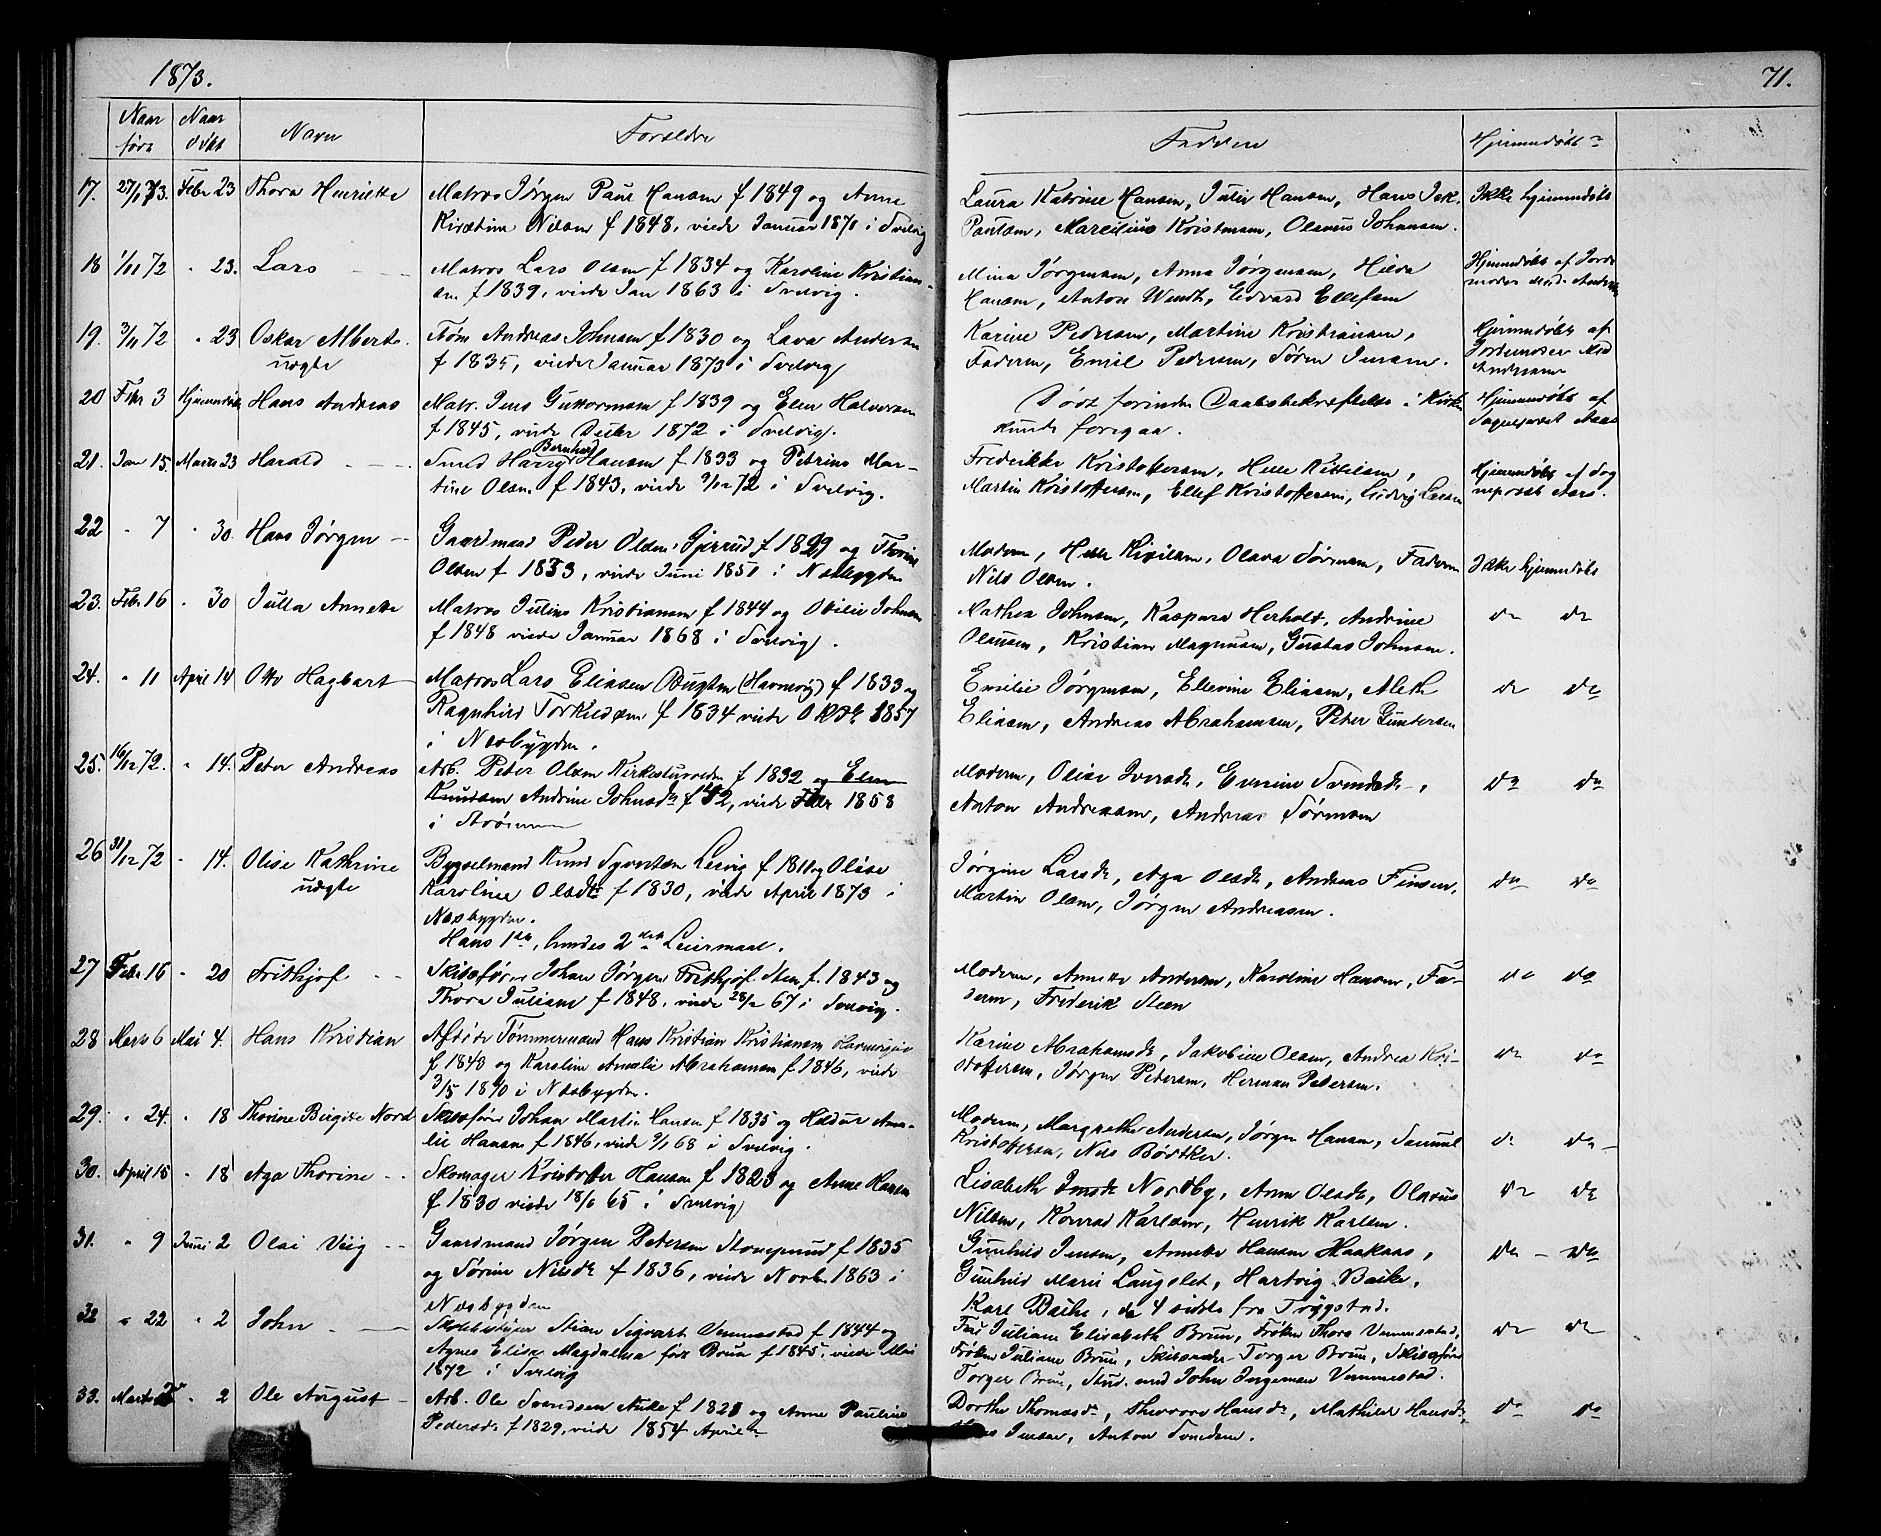 1873.
71.
Naar født
Naar døbt
Navn
Forældre
Faddere
Hjemmedøbt
17. 27/1 73. Febr 23 Thora Henriette Matros Jørgen Paul Hansen f 1849 og Anne
Kirstine Nilsen f 1848, viede Januar 1871 i Svelvig
Laura Katrine Hansen, Julie Hansen, Hans Jak.
Paulsen, Marcilius Kristensen, Olavus Johnsen.
Ikke hjemmedøbt
18 1/11 72 " 23. Lars Matros Lars Olsen f 1834 og Karoline Kristian-
sen f 1839, viede Jan 1863 i Svelvig.
Mina Jørgensen, Anna Jørgensen, Hilda
Hansen, Anton Wendt, Edvard Ellefsen
Hjemmedøbt af Jorde
moder Mad. Andersen
19. 3/11 72 " 23 Oskar Albert
uægte
Andreas Johnsen f 1830 og Lava Andersen
f 1835, viede Januar 1873 i Svelvig
Karine Pedersen, Martine Kristiansen,
Faderen, Emil Pedersen, Søren Jensen.
Hjemmedøbt af
Jordemoder Mad
Andersen
20 Febr 3 Hjemmedøbt Hans Andreas Matr. Jens Guttormsen f 1839 og Elen Halvorsen
f 1845, viede Decbr 1872 i Svelvig.
Død forinden Daabsbekræftelse i Kirken
kunde foregaa.
Hjemmedøbt af
Sognepræst Aars
21. Jan 15. Marts 23 Harald Smed Harry Bernhard Hansen f 1833 og Petrine Mar-
tine Olsen f 1843, viede 9/12 72 i Svelvig.
Fredrikke Kristoffersen, Helle Kittilsen,
Martin Kristoffersen, Ellef Kristoffersen, Ludvig Larsen
Hjemmedøbt af Sog
nepræst Aars.
22 " 7 " 30. Hans Jørgen Gaardmand Peder Olsen Gjerrud f 1829 og Thorine
Olsen f 1833, viede Juni 1851 i Næsbygden
Moderen, Helle Kittilsen, Olava Sørensen, Faderen
Nils Olsen.
Ikke hjemmedøbt
23. Febr 16 " 30 Julla Annette Matros Julius Kristiansen f 1844 og Otilie Johnsen
f 1848 viede Januar 1868 i Svelvig.
Mathea Johnsen, Kaspara Herholdt, Andrine
Olausen, Kristian Magnusen, Gustav Johnsen.
do do
24. " 11 April 14 Otto Hagbart Matros Lars Eliasen Bugten (Havnevig) f 1833 og
Ragnhild Torkildsen f 1834 viede Oktbr 1857
i Næsbygden.
Emilie Jørgensen, Ellevine Eliasen, Aleth
Eliasen, Andreas Abrahamsen, Peter Guntersen
do do
25. 16/12 72. " 14. Peter Andreas Arb. Peter Olsen f 1832 og Elen
Knudsen Andrine Johnsdr f 1832, viede Febr 1858
i Strømmen
Moderen, Olise Iversdr, Everine Svendsdr,
Anton Andreassen, Andreas Sørensen
do do
26 31/12 72 " 14. Olise Kathrine
uægte
Bygselmand Knud Syvertsen Lersvig f 1811 og Olise
Karoline Olsdtr f 1830, viede April 1873 i
Næsbygden.
Hans 1ste, hendes 2det Leiermaal.
Jørgine Larsdr, Aga Olsdr, Andreas Finsen,
Martin Olsen, Jørgen Andreassen.
do do
27 Febr 16 " 20 Frithjof Skibsfører Johan Jørgen Frithjof Sten f. 1843 og
Thora Juliane f 1848, viede 28/2 67 i Svelvig.
Moderen, Annette Andersen, Karoline Hansen, Fa-
deren, Frederik Steen
do do
28 Marts 6 Mai 4. Hans Kristian Afdøde Tømmermand Hans Kristian Kristiansen
f 1848 og Karoline Amalie Abrahamsen f 1846, viede
3/5 1870 i Næsbygden.
Karine Abrahamsdr, Jakobine Olsen, Andrea Kri-
stoffersen, Jørgen Pedersen, Herman Petersen.
do do
29. " 24. " 18 Thorine Birgitte Nord Skibsfører Johan Martin Hansen f 1835 og Hildur Ama-
lie Hansen f 1846, viede 9/1 68 i Svelvig.
Moderen, Margrethe Andersen, Jørgen Hansen, Samuel
Kristoffersen, Nils Bødtker.
do do
30. April 15 " 18 Aga Thorine Skomager Kristoffer Hansen f 1823 og Anne Hansen
f 1830 viede 18/6 65 i Svelvig
Lisabeth Jensdr Nordby, Anne Olsdr, Olavus
Nilsen, Konrad Karlsen, Henrik Karlsen.
do do
31. " 9 Juni 2 Olai Viig Gaardmand Jørgen Petersen f 1835
og Sørine Nilsdr f 1836, viede Novbr 1863 i
Næsbygden
Gunhild Jensen, Annette Hansen Haakaas,
Gunhild Marie Langslet, Hartvig Bache,
Karl Bache, de 4 sidste fra Trygstad.
do do
32 " 22 " 2 John Skolebestyrer Stian Sigvart Vemmestad f 1844 og
Agnes Elise Magdalena født Brun f 1845, viede Mai
1872 i Svelvig
Fru Juliane Elisabeth Brun, Frøken Thora Vemmestad,
Frøken Juliane Brun, Skibsreder Torger Brun, Skibsfører
Torger Brun, Stud. med John Ingeman Vemmestad.
do do
33. Marts " 2 Ole August Arb. Ole Svendsen Aule f 1828 og Anne Pauline
Pedersdr f 1829, viede 1854 April
Dorthe Thomasdr, Hansdr, Mathilde Hansdr,
Jensen, Anton Svendsen.
do do